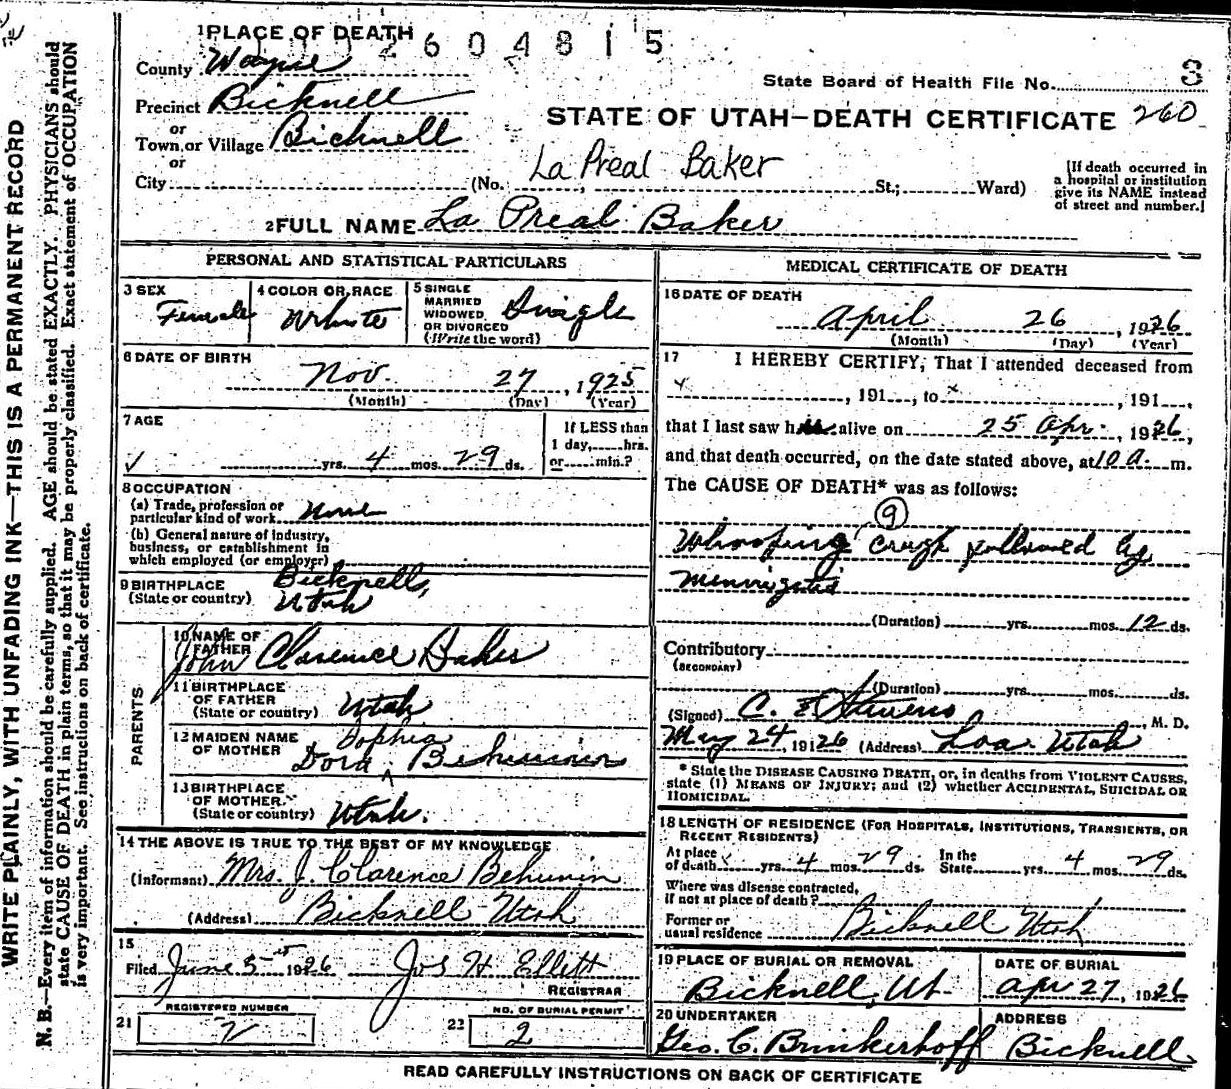 1 PLACE OF DEATH
2604815
County Wayne
Precinct Bicknell
or
Town or Village Bicknell
or
City (No. St.; Ward)
La Preal Baker
2 FULL NAME La Preal Baker
State Board of Health File No. 3
STATE OF UTAH—DEATH CERTIFICATE 260
[If death occurred in
a hospital or institution
give its NAME instead
of street and number.]
WRITE PLAINLY, WITH UNFADING INK—THIS IS A PERMANENT RECORD
N. B.—Every item of information should be carefully supplied. AGE should be stated EXACTLY. PHYSICIANS should
state CAUSE OF DEATH in plain terms, so that it may be properly classified. Exact statement of OCCUPATION
is very important. See instructions on back of certificate.
PERSONAL AND STATISTICAL PARTICULARS
3 SEX
Female
4 COLOR OR RACE
White
5 SINGLE
MARRIED
WIDOWED
OR DIVORCED
(Write the word)
Single
6 DATE OF BIRTH
Nov. 27, 1925
(Month) (Day) (Year)
7 AGE
yrs. 4 mos. 29 ds.
If LESS than
1 day, hrs.
or min.?
8 OCCUPATION
(a) Trade, profession or
particular kind of work None
(b) General nature of industry,
business, or establishment in
which employed (or employer)
9 BIRTHPLACE
(State or country)
Bicknell,
Utah
PARENTS
10 NAME OF
FATHER
John Clarence Baker
11 BIRTHPLACE
OF FATHER
(State or country) Utah
12 MAIDEN NAME
OF MOTHER
Sophia
Dora Behunin
13 BIRTHPLACE
OF MOTHER
(State or country) Utah.
14 THE ABOVE IS TRUE TO THE BEST OF MY KNOWLEDGE
(Informant) Mrs. J. Clarence Behunin
(Address) Bicknell Utah
15
Filed June 5 1926 Jos H Ellett
REGISTRAR
REGISTERED NUMBER
21 2
NO. OF BURIAL PERMIT
22 2
MEDICAL CERTIFICATE OF DEATH
16 DATE OF DEATH
April 26, 1926
(Month) (Day) (Year)
17 I HEREBY CERTIFY, That I attended deceased from
x, 191, to x, 191,
that I last saw h alive on 25 Apr. 1926,
and that death occurred, on the date stated above, at 10 a. m.
The CAUSE OF DEATH* was as follows:
9
Whooping cough followed by
(Duration) yrs. mos. 12 ds.
Contributory
(SECONDARY)
(Duration) yrs. mos. ds.
(Signed) C. E. , M. D.
May 24, 19126 (Address) Loa Utah
* State the DISEASE CAUSING DEATH, or, in deaths from VIOLENT CAUSES,
state (1) MEANS OF INJURY; and (2) whether ACCIDENTAL, SUICIDAL OR
HOMICIDAL.
18 LENGTH OF RESIDENCE (FOR HOSPITALS, INSTITUTIONS, TRANSIENTS, OR
RECENT RESIDENTS)
At place
of death yrs. 4 mos. 29 ds.
In the
State yrs. 4 mos. 29 ds.
Where was disease contracted,
If not at place of death?
Former or
usual residence Bicknell Utah
19 PLACE OF BURIAL OR REMOVAL
Bicknell, Ut.
DATE OF BURIAL
Apr 27, 1926
20 UNDERTAKER
Geo. C. Brinkerhoff
ADDRESS
Bicknell
READ CAREFULLY INSTRUCTIONS ON BACK OF CERTIFICATE